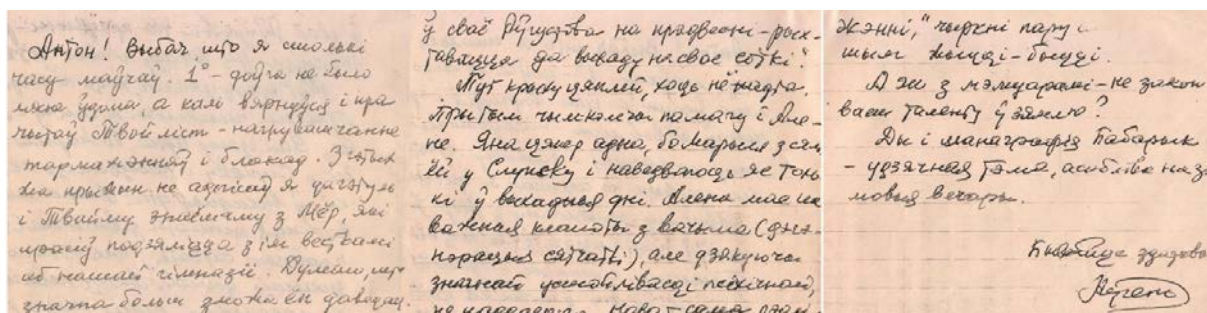 Антон! Выбач што я столькі
часу маўчаў. 1° – доўга не было
мяне ўдома, а калі вярнуўся і пра
чытаў Твой ліст – нагрувашчанне
тармажэнняў і блокад. З гэтых
жа прычын не адпісаў я дагэтуль
і Твайму зямлячку з Мёр, які
прасіў падзяліцца з ім весткамі
аб нашай гімназіі. Думаю,
значна больш зможа ён даведац
ў сваё на прадвесні – рыхт
да выхаду на свае соткі."
Тут крыху цяплей, хоць не надта.
Прытым чымкольчы памагу і Але-
не. Яна цяпер адна, бо Марыля з сям
ёй у Слупску і наведваюць яе толь
кі ў выхадныя дні. Алена мае
важныя клопаты з вачыма (дэге-
нерацыя сятчаткі), але дзякуючы
значнай устойлівасці псіхічнай,
не паддаецца. Нават сама
жэнні," чыркні пару
шым жыцці-быцці.
А як з мэмуарамі – не закоп
ваеш таленту ў зямлю?
Ды і манаграфія Бабарык
– удзячная тэма, асабліва на зі
мовыя вечары.
Бывайце здаровы